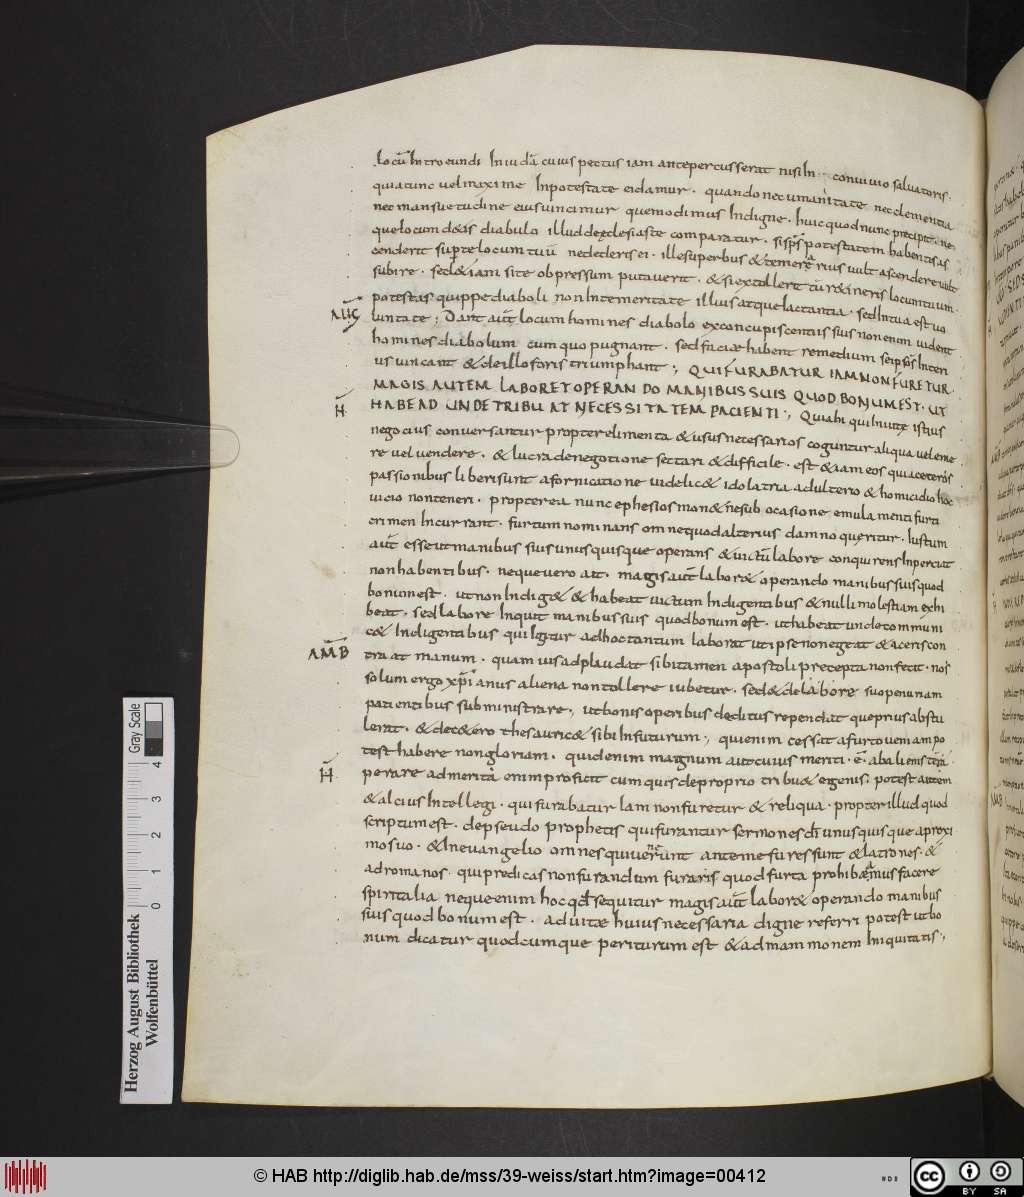 locū Introeundi In iudā cuius pectus iam ante percusserat nisi In convivio salvatoris.
quia tunc vel maxime In potestate eidamur. quando nec umanitate nec clementia
nec mansuetudine eius vincimur quem odimus Indigne. huic quod nunc precipit. ne
que locum detis diabulo illud decclesiaste comparatur. si sps potestatem habentis as
cenderit sup te locum tuū ne dederis ei. ille superbus & temerarius vult ascendere vult
subire. sed & iam si te obpressum putaverit. & si extollerit tūr & ineris locum tuum.
potestas quippe diaboli non In temeritate illius atque lactantia. sed In tua est vo
AUG luntate; Dant aut locum homines diabolo ex concupiscentiis suis non enim vident
homines diabolum cum quo pugnant. sed faciae habent remedium seipsos Interi
us vincant & de illo foris triumphant; QUI FURABATUR IAM NON FURETUR.
MAGIS AUTEM LABORET OPERANDO MANIBUS SUIS QUOD BONUM EST. UT
H̄ HABEAD UNDE TRIBUAT NECESSITATEM PACIENTI; Quia hi qui In vite istius
negociis conversantur propter elimenta & usus necessarios coguntur aliqua vel eme
re vel vendere. & lucra de negotione sectari & difficile. est & iam eos qui a ceteris
passionibus liberi sunt a fornicatione videlic& idolatria adultero & homicidio hoc
vicio non teneri. propterea nunc ephesios mon& ne sub ocasione emulamenti furti
crimen Incurrant. furtum nominans omne quod alterius damno queritur. Iustum
aut esse ut manibus suis unusquisque operans & victū labore conquirens Inperciat
non habentibus. neque vero ait. magis aut labor& operando manibus suis quod
bonum est. ut non Indig& & habeat victum Indigentibus & nulli molestiam exhi
beat. sed labore Inquit manibus suis quod bonum est. ut habeat unde communi
c& Indigentibus qui Igitur ad hoc tantum laborat ut ipse non egeat & aceris con
AMB traat manum. quam vis adplaudat sibi tamen apostoli precepta non fecit. nos
solum ergo xpianus aliena non tollere iubetur. sed & de labore suo penuriam
patientibus subministrare; ut bonis operibus deditus rependat que prius abstu
lerat. & dec&ero thesauric& sibi In futurum; qui enim cessat a furto veniam po
test habere non gloriam. quid enim magnum aut cuius meriti. ē. ab alienis tēpā
H̄ perare ad meritā enim proficit cum quis de proprio tribu& egenis; potest autem
& alcius Intellegi. qui furabatur Iam non furetur & reliqua. propter illud quod
scriptum est. de pseudo prophetis qui furantur sermones di unusquisque a proxi
mo suo. & In evangelio omnes qui venerunt ante me fures sunt & latrones. &
ad romanos. qui predicas non furandum furaris quod furta prohibeamus facere
spiritalia neque enim hoc qd sequitur magis aut labor& operando manibus
suis quod bonum est. ad vitae huius necessaria digne referri potest ut bo
num dicatur quodcumque periturum est & ad mammonem Iniquitatis;
Herzog August Bibliothek
Wolfenbüttel
0 1 2 3 4
Gray Scale
© HAB http://diglib.hab.de/mss/39-weiss/start.htm?image=00412
cc BY SA